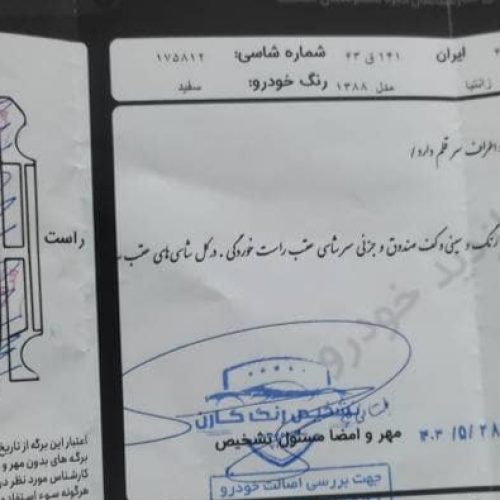 ایران ۱۴۱ ق ۲۳ شماره شاسی: ۱۷۵۸۱۲
زانتیا مدل ۱۳۸۸ رنگ خودرو: سفید
اطراف سر قلم دارد /
راست
رنگ و سینی و کف صندوق و جزئی سرشاسی عقب راست خوردگی . در کل شاسی های عقب
تشخیص رنگ کارن
مهر و امضا مسئول تشخیص
جهت بررسی اصالت خودرو
اعتبار این برگه از تاریخ
برگه های بدون مهر و
کارشناس مورد نظر در
هرگونه سوء استفاده